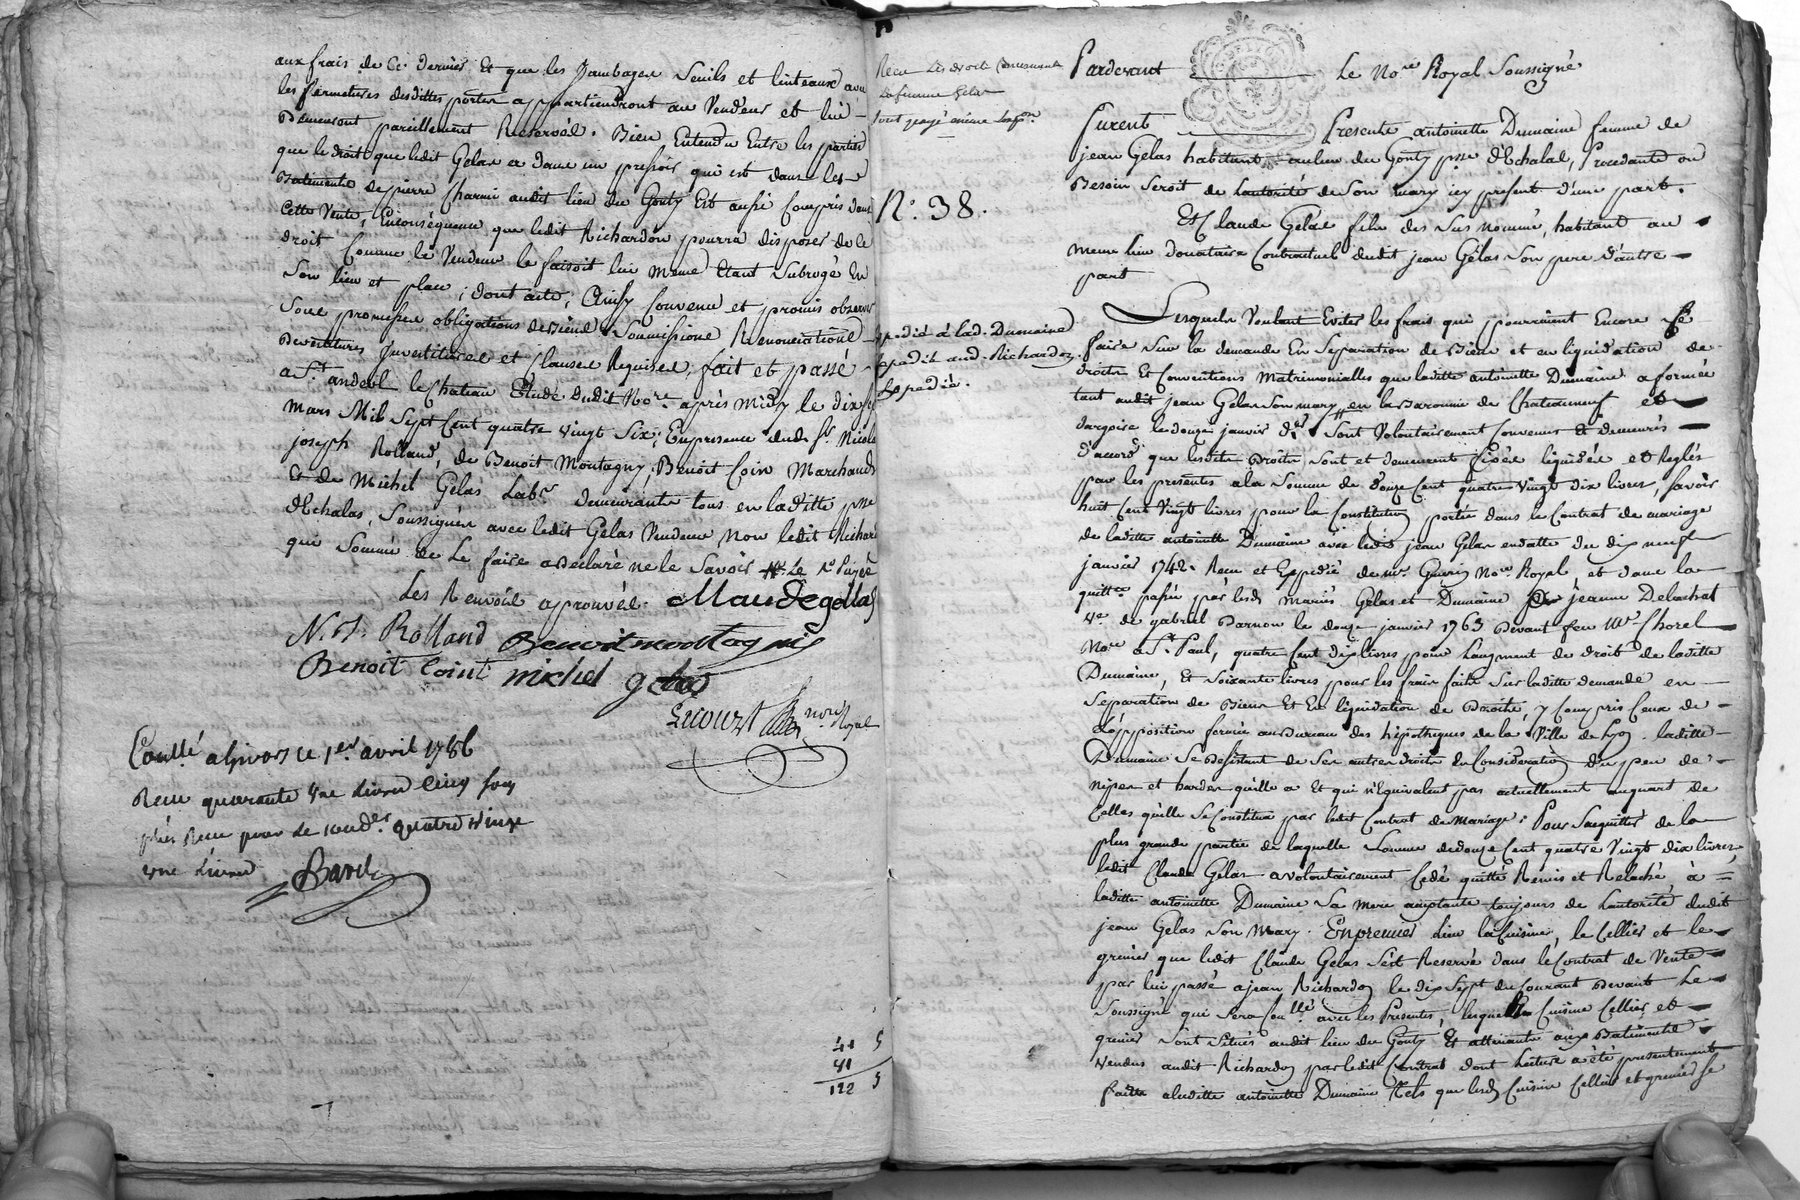 aux frais de Ce dernier Et que les Jambages Seuils et linteaux avec
les fermetures desdittes portes appartiendront au Vendeur et lui
Demeuront pareillement Reservés. Bien Entendu Entre les parties
que le droit que ledit Gelas a dans un pressoir qui est dans les
Batiments de pierre Charmi audit lieu du Gonty Est aussi Compris dans
Cette Vente, Enconséquence que ledit Richardon pourra disposer de ce
droit Comme le Vendeur le faisoit lui meme Etant Subrogé En
Son lieu et place; dont acte, Ainsy Convenu et promis observer
Sous promesses obligations de Biens Soumissions Renonciations
Devestitures Investitures et Clauses Requises, fait et passé
a St. andeol le Chateau Etude dudit Nore. après midy le dix sept
Mars Mil Sept Cent quatre vingt Six; Enpresence dudt. Sr. Nicolas
joseph Rolland, de Benoit Montagny, Benoit Coin Marchands
Et de Michel Gelas Labr. demeurants tous en laditte psse
d'Echalas, Soussignés avec ledit Gelas Vendeur Non ledit Richardon
qui Sommé de Le faire a Declaré ne le Savoir
Les Renvois approuvés. Claude gellas
N. J. Rolland Benoit montagnie
Benoit Coint michel gelas
nore Royal
Conllé a Givors le 1er. avril 1786
Recu quarante Une Livres Cinq sous
plus Recu pour Le cendr. quatre Vingt
une Livres
Barel
41 5
81
122 5
Recu Les droits
la femme Gelas
N.o 38.
Expedié à lad. Dumaine
Expedié aud. Richardon
Expedié.
Pardevant Le Nore Royal Soussigné
Furent Presents antoinette Dumaine femme de
jean Gelas habitant aulieu du Gonty psse d'Echalas, Procedante ou
Besoin Seroit de Lautorité de Son mary icy present d'une part.
Et Claude Gelas fils des Sus nommés, habitant au
meme lieu donataire Contractuel dudit jean Gelas Son pere d'autre
part
Lesquels Voulant Eviter les frais qui pourroient Encore Se
faire Sur la demande En Separation de Biens et en liquidation de
droits Et Conventions Matrimonialles que laditte antoinette Dumaine a formée
tant audit jean Gelas Son mary en la Baronnie de Chateauneuf et
dargoire le douze janvier der. Sont Volontairement Convenus Et demeurés
d'accord que lesdits Droits Sont et demeurent fixés liquidés et Reglés
par les presentes a la Somme de Douze Cent quatre Vingt dix livres, Savoir
huit Cent Vingt livres pour la Constitution portée dans le Contrat de mariage
de laditte antoinette Dumaine avec ledit jean Gelas endatte du dix neuf
janvier 1742. Recu et Expedié de mr. Guerin Nore. Royal et dans la
quittce passée par lesd. mariés Gelas et Dumaine jeanne Delachat
Ve de gabriel Barnou le douze janvier 1763 Devant feu Mr. Thorel
Nore a St. Paul, quatre Cent dix livres pour Laugment de droit de laditte
Dumaine, Et Soixante livres pour les frais faits Sur laditte demande en
Separation de Biens Et En liquidation de Droits, y Compris Ceux de
l'opposition formée au Bureau des hipotheques de la Ville de Lyon. laditte
Dumaine Se Desistant de Ses autres droits En Consideration du peu de
nipes et hardes quelle a Et qui n'Equivalent pas actuellement auquart de
Celles qu'elle Se Constitua par ledit Contrat de Mariage; Pour S'acquitter de la
plus grande partie de laquelle Somme de douze Cent quatre Vingt dix livres,
ledit Claude Gelas a volontairement Cedé quitté Remis et Relaché à
laditte antoinette Dumaine Sa Mere acceptante toujours de Lautorité dudit
jean Gelas Son Mary. En premier lieu la Cuisine, le Cellier et le
grenier que ledit Claude Gelas S'est Reservé dans le Contrat de Vente
par lui passé a jean Richardon le dix Sept du Courant Devant Le
Soussigné qui Sera Conllé avec les Presentes, lesquels Cuisine Cellier et
grenier Sont Situés audit lieu du Gonty Et attenants aux Batiments
Vendus audit Richardon par ledit Contrat dont Lecture a été presentement
faitte a laditte antoinette Dumaine tels que lesd. Cuisine Cellier et grenier Se